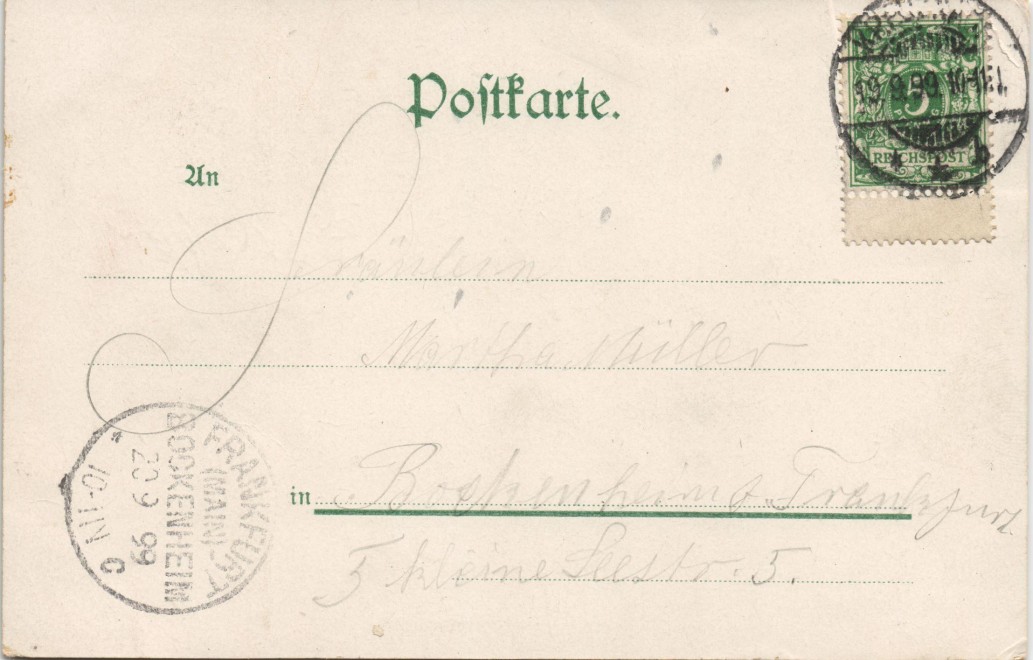 Postkarte.
5
REICHSPOST
An
Fräulein
Martha Müller
in Bockenheim b. Frankfurt
5 kleine Seestr. 5.
FRANKFURT
(MAIN)
BOCKENHEIM
20 9 99
10-11N